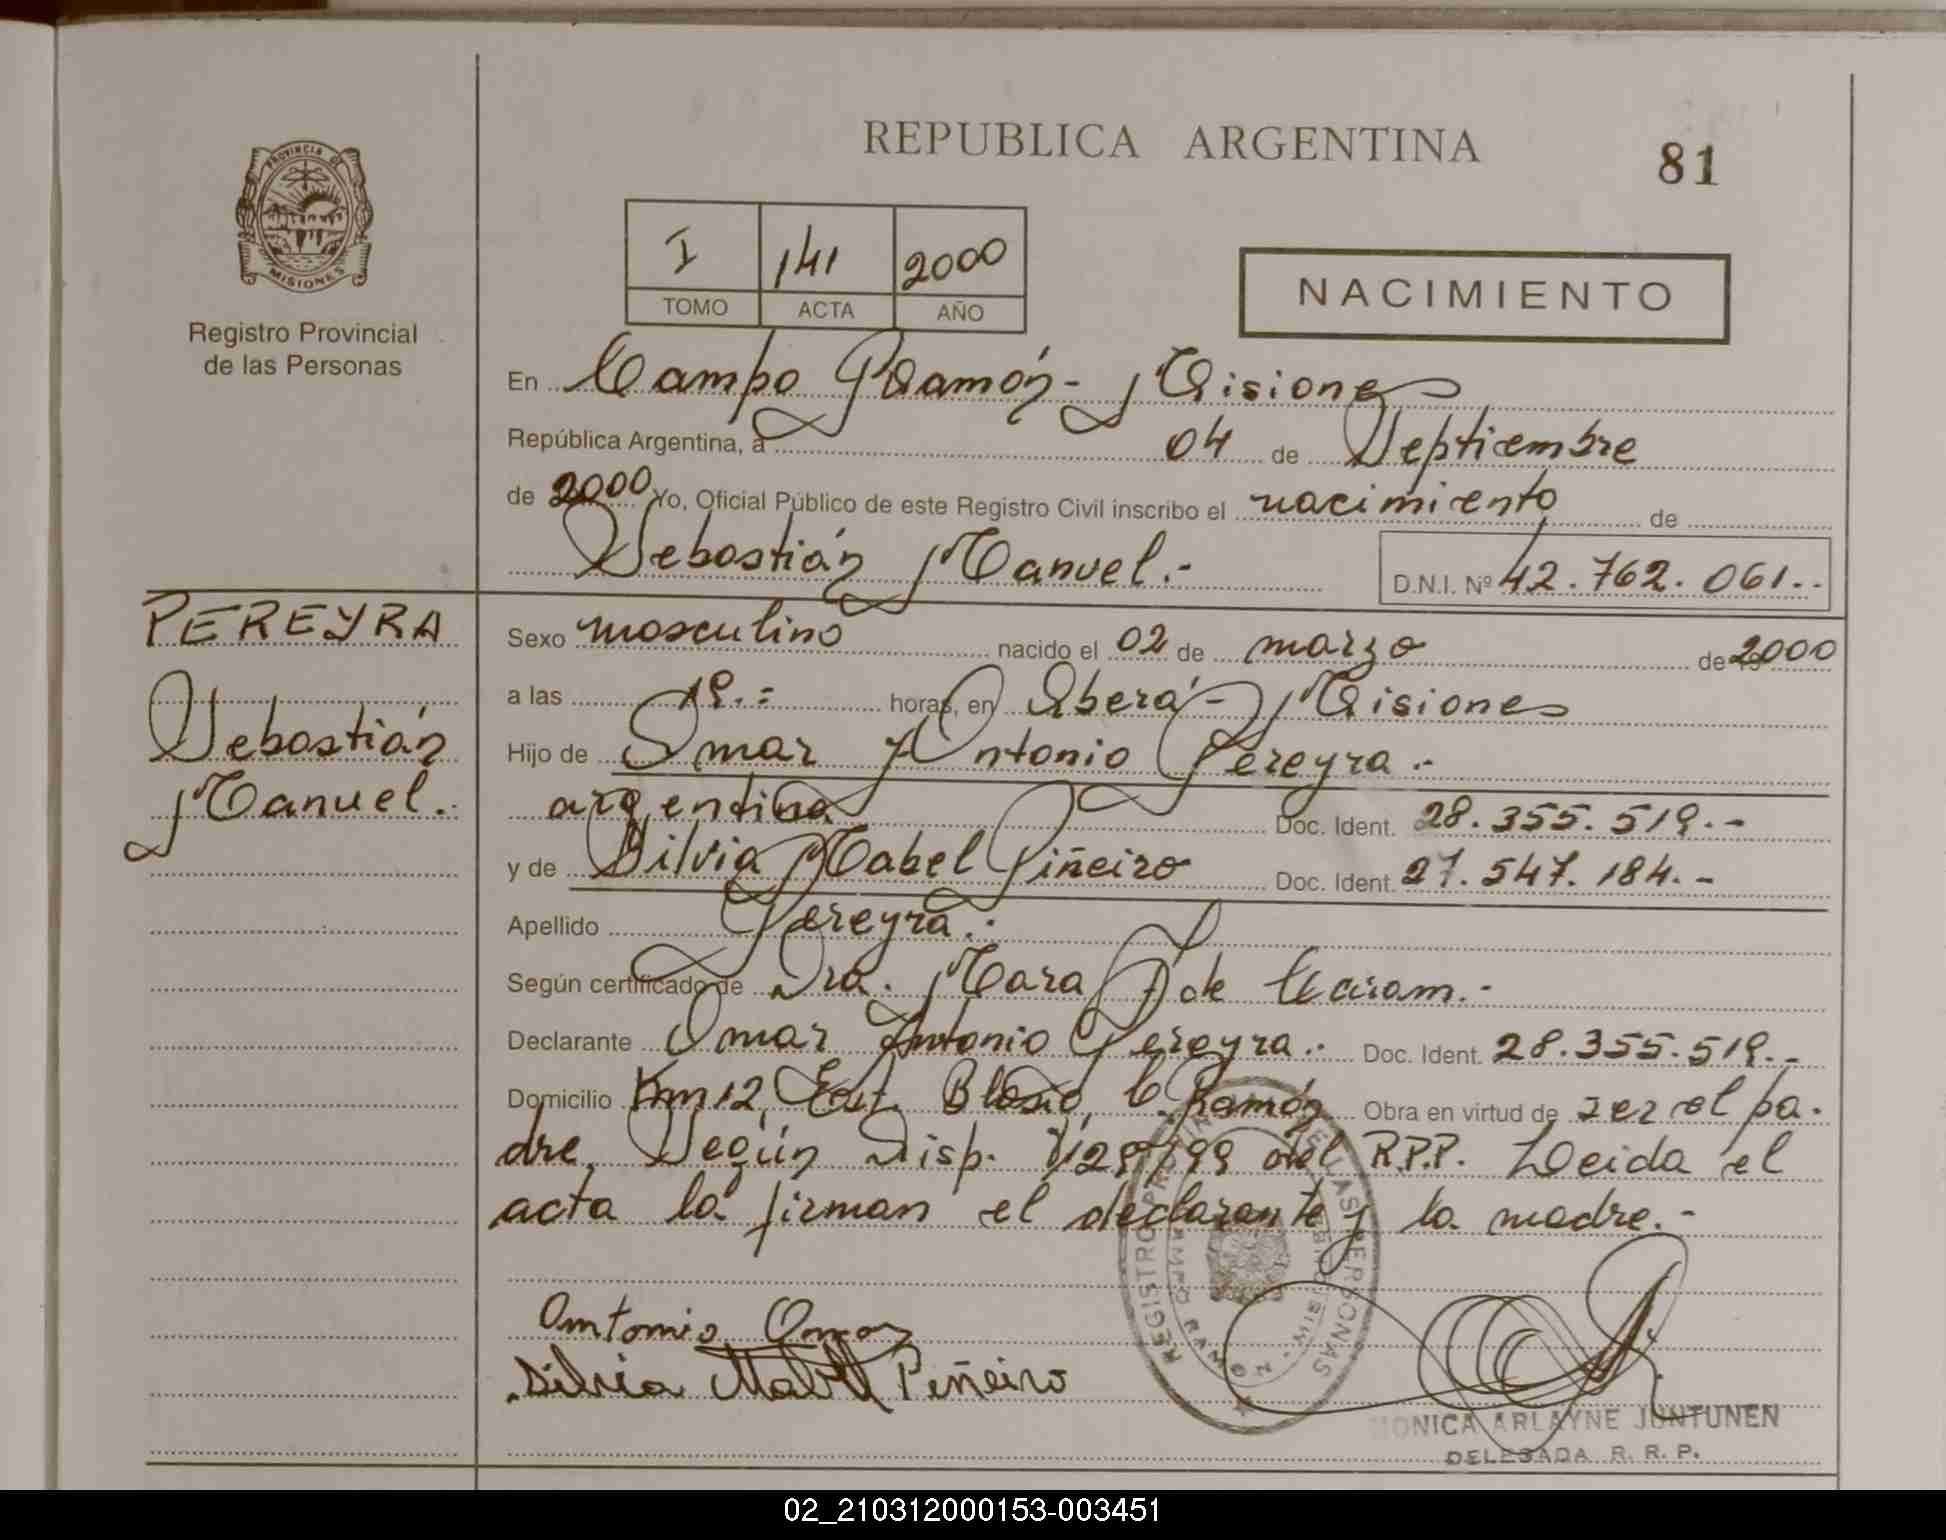 REPUBLICA ARGENTINA
81
PROVINCIA DE
MISIONES
Registro Provincial
de las Personas
I 141 2000
TOMO ACTA AÑO
NACIMIENTO
En Campo Ramón - Misiones
República Argentina, a 04 de Septiembre
de 2000 Yo, Oficial Público de este Registro Civil inscribo el nacimiento de
Sebastián Manuel.-
D.N.I. Nº 42.762.061.-
PEREYRA
Sebastián
Manuel.-
Sexo masculino nacido el 02 de marzo de 2000
a las 19.= horas, en Oberá - Misiones
Hijo de Omar Antonio Pereyra.-
argentina Doc. Ident. 28.355.519.-
y de Silvia Mabel Piñeiro Doc. Ident. 27.547.184.-
Apellido Pereyra.-
Según certificado de Dra. Mara de
Declarante Omar Antonio Pereyra.- Doc. Ident. 28.355.519.-
Domicilio Km 12, Blasio, C. Ramón Obra en virtud de ser el pa-
dre, Según Disp. del R.P.P. Leida el
acta la firman el declarante y la madre.-
Antonio Omar
Silvia Mabel Piñeiro
REGISTRO PROVINCIAL DE LAS PERSONAS
CAMPO RAMON - MISIONES
MONICA ARLAYNE JUNTUNEN
DELEGADA R. R. P.
02_210312000153-003451